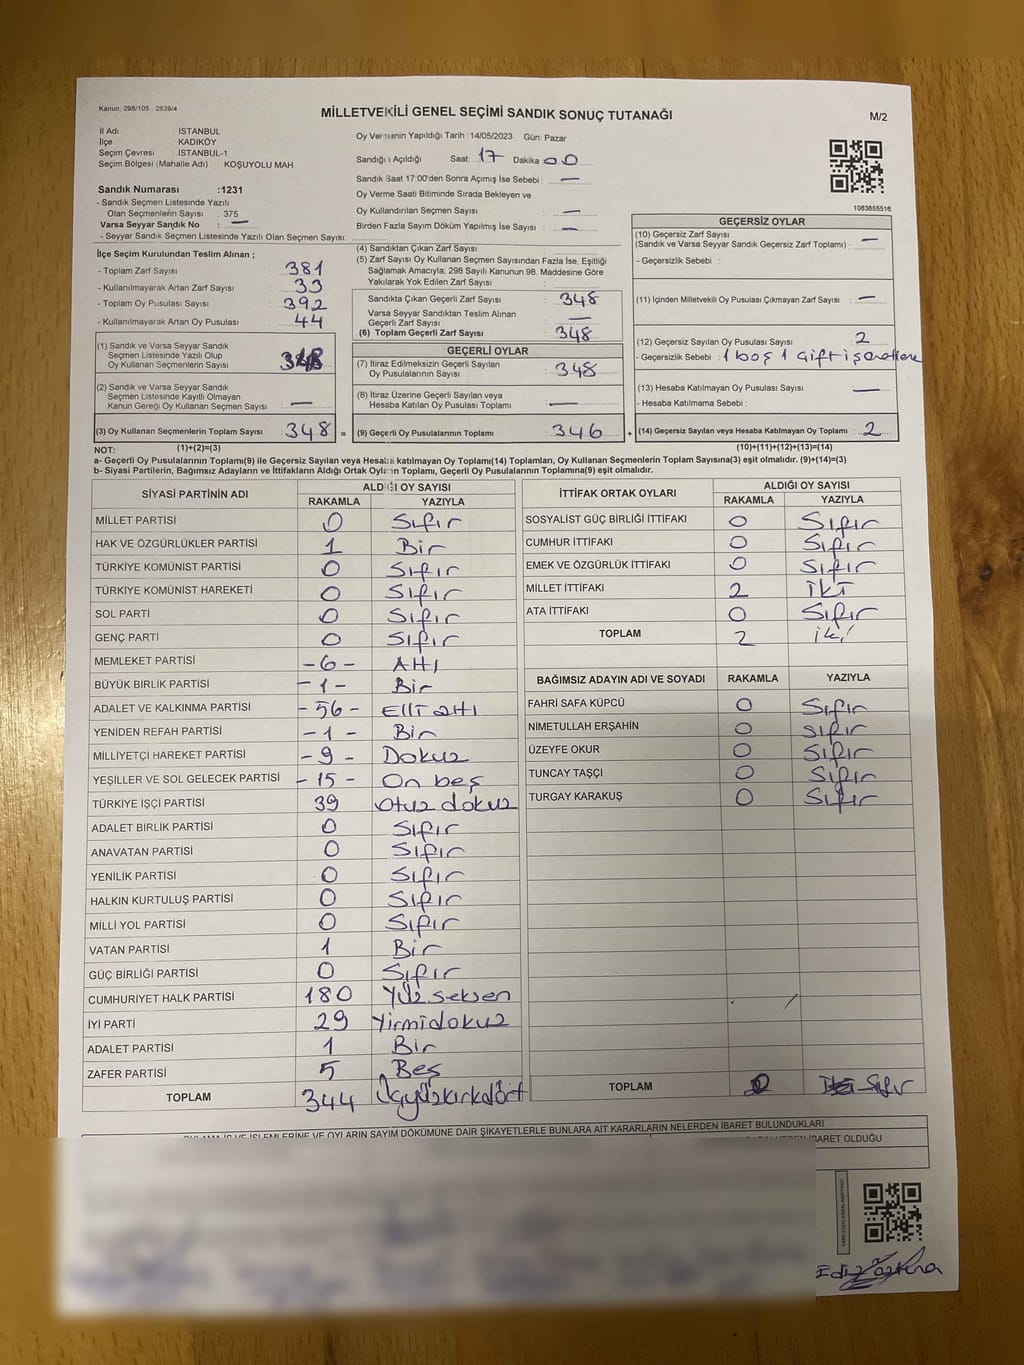 Kanun: 298/105 - 2839/4
MİLLETVEKİLİ GENEL SEÇİMİ SANDIK SONUÇ TUTANAĞI
M/2
İl Adı : İSTANBUL
İlçe : KADIKÖY
Seçim Çevresi : İSTANBUL-1
Seçim Bölgesi (Mahalle Adı) : KOŞUYOLU MAH.
Sandık Numarası :1231
- Sandık Seçmen Listesinde Yazılı
Olan Seçmenlerin Sayısı : 375
Varsa Seyyar Sandık No : —
- Seyyar Sandık Seçmen Listesinde Yazılı Olan Seçmen Sayısı:
Oy Vermenin Yapıldığı Tarih :14/05/2023 Gün: Pazar
Sandığın Açıldığı Saat: 17 Dakika 00
Sandık Saat 17:00'den Sonra Açımış İse Sebebi : —
Oy Verme Saati Bitiminde Sırada Bekleyen ve
Oy Kullandırılan Seçmen Sayısı : —
Birden Fazla Sayım Döküm Yapılmış İse Sayısı : —
1083655516
İlçe Seçim Kurulundan Teslim Alınan ;
- Toplam Zarf Sayısı : 381
- Kullanılmayarak Artan Zarf Sayısı : 33
- Toplam Oy Pusulası Sayısı : 392
- Kullanılmayarak Artan Oy Pusulası : 44
(1) Sandık ve Varsa Seyyar Sandık
Seçmen Listesinde Yazılı Olup
Oy Kullanan Seçmenlerin Sayısı : 348
(2) Sandık ve Varsa Seyyar Sandık
Seçmen Listesinde Kayıtlı Olmayan
Kanun Gereği Oy Kullanan Seçmen Sayısı : —
(3) Oy Kullanan Seçmenlerin Toplam Sayısı : 348 =
(4) Sandıktan Çıkan Zarf Sayısı
(5) Zarf Sayısı Oy Kullanan Seçmen Sayısından Fazla İse, Eşitliği
Sağlamak Amacıyla; 298 Sayılı Kanunun 98. Maddesine Göre
Yakılarak Yok Edilen Zarf Sayısı :
Sandıkta Çıkan Geçerli Zarf Sayısı : 348
Varsa Seyyar Sandıktan Teslim Alınan
Geçerli Zarf Sayısı : —
(6) Toplam Geçerli Zarf Sayısı : 348
GEÇERLİ OYLAR
(7) İtiraz Edilmeksizin Geçerli Sayılan
Oy Pusulalarının Sayısı : 348
(8) İtiraz Üzerine Geçerli Sayılan veya
Hesaba Katılan Oy Pusulası Toplamı : —
(9) Geçerli Oy Pusulalarının Toplamı : 346 +
GEÇERSİZ OYLAR
(10) Geçersiz Zarf Sayısı
(Sandık ve Varsa Seyyar Sandık Geçersiz Zarf Toplamı) : —
- Geçersizlik Sebebi :
(11) İçinden Milletvekili Oy Pusulası Çıkmayan Zarf Sayısı : —
(12) Geçersiz Sayılan Oy Pusulası Sayısı : 2
- Geçersizlik Sebebi : 1 boş 1 çift
(13) Hesaba Katılmayan Oy Pusulası Sayısı : —
- Hesaba Katılmama Sebebi :
(14) Geçersiz Sayılan veya Hesaba Katılmayan Oy Toplamı : 2
NOT: (1)+(2)=(3) (10)+(11)+(12)+(13)=(14)
a- Geçerli Oy Pusulalarının Toplamı(9) ile Geçersiz Sayılan veya Hesaba katılmayan Oy Toplamı(14) Toplamları, Oy Kullanan Seçmenlerin Toplam Sayısına(3) eşit olmalıdır. (9)+(14)=(3)
b- Siyasi Partilerin, Bağımsız Adayların ve İttifakların Aldığı Ortak Oyların Toplamı, Geçerli Oy Pusulalarının Toplamına(9) eşit olmalıdır.
SİYASİ PARTİNİN ADI ALDIĞI OY SAYISI
RAKAMLA YAZIYLA
MİLLET PARTİSİ 0 Sıfır
HAK VE ÖZGÜRLÜKLER PARTİSİ 1 Bir
TÜRKİYE KOMÜNİST PARTİSİ 0 Sıfır
TÜRKİYE KOMÜNİST HAREKETİ 0 Sıfır
SOL PARTİ 0 Sıfır
GENÇ PARTİ 0 Sıfır
MEMLEKET PARTİSİ -6- Altı
BÜYÜK BİRLİK PARTİSİ -1- Bir
ADALET VE KALKINMA PARTİSİ -56- Elli altı
YENİDEN REFAH PARTİSİ -1- Bir
MİLLİYETÇİ HAREKET PARTİSİ -9- Dokuz
YEŞİLLER VE SOL GELECEK PARTİSİ -15- On beş
TÜRKİYE İŞÇİ PARTİSİ 39 Otuz dokuz
ADALET BİRLİK PARTİSİ 0 Sıfır
ANAVATAN PARTİSİ 0 Sıfır
YENİLİK PARTİSİ 0 Sıfır
HALKIN KURTULUŞ PARTİSİ 0 Sıfır
MİLLİ YOL PARTİSİ 0 Sıfır
VATAN PARTİSİ 1 Bir
GÜÇ BİRLİĞİ PARTİSİ 0 Sıfır
CUMHURİYET HALK PARTİSİ 180 Yüz seksen
İYİ PARTİ 29 Yirmidokuz
ADALET PARTİSİ 1 Bir
ZAFER PARTİSİ 5 Beş
TOPLAM 344 Üçyüzkırkdört
İTTİFAK ORTAK OYLARI ALDIĞI OY SAYISI
RAKAMLA YAZIYLA
SOSYALİST GÜÇ BİRLİĞİ İTTİFAKI 0 Sıfır
CUMHUR İTTİFAKI 0 Sıfır
EMEK VE ÖZGÜRLÜK İTTİFAKI 0 Sıfır
MİLLET İTTİFAKI 2 İki
ATA İTTİFAKI 0 Sıfır
TOPLAM 2 iki
BAĞIMSIZ ADAYIN ADI VE SOYADI RAKAMLA YAZIYLA
FAHRİ SAFA KÜPCÜ 0 Sıfır
NİMETULLAH ERŞAHİN 0 sıfır
ÜZEYFE OKUR 0 Sıfır
TUNCAY TAŞÇI 0 Sıfır
TURGAY KARAKUŞ 0 Sıfır
TOPLAM 0 Sıfır
VE İŞLEMLERİNE VE OYLARIN SAYIM DÖKÜMÜNE DAİR ŞİKAYETLERLE BUNLARA AİT KARARLARIN NELERDEN İBARET BULUNDUKLARI
İBARET OLDUĞU